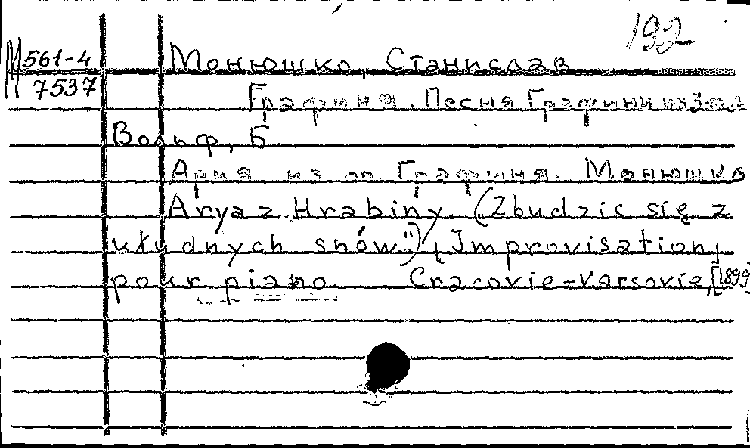 192
М 561-4 Монюшко, Станислав
7537 Графиня. Песня Графини из 3 д.
Вольф, Б.
Ария из оп. Графиня. Монюшко
Arya z Hrabiny. (Zbudzic się z
ułudnych snów") (Improvisation)
pour piano Cracovie=Varsovie, [1899]